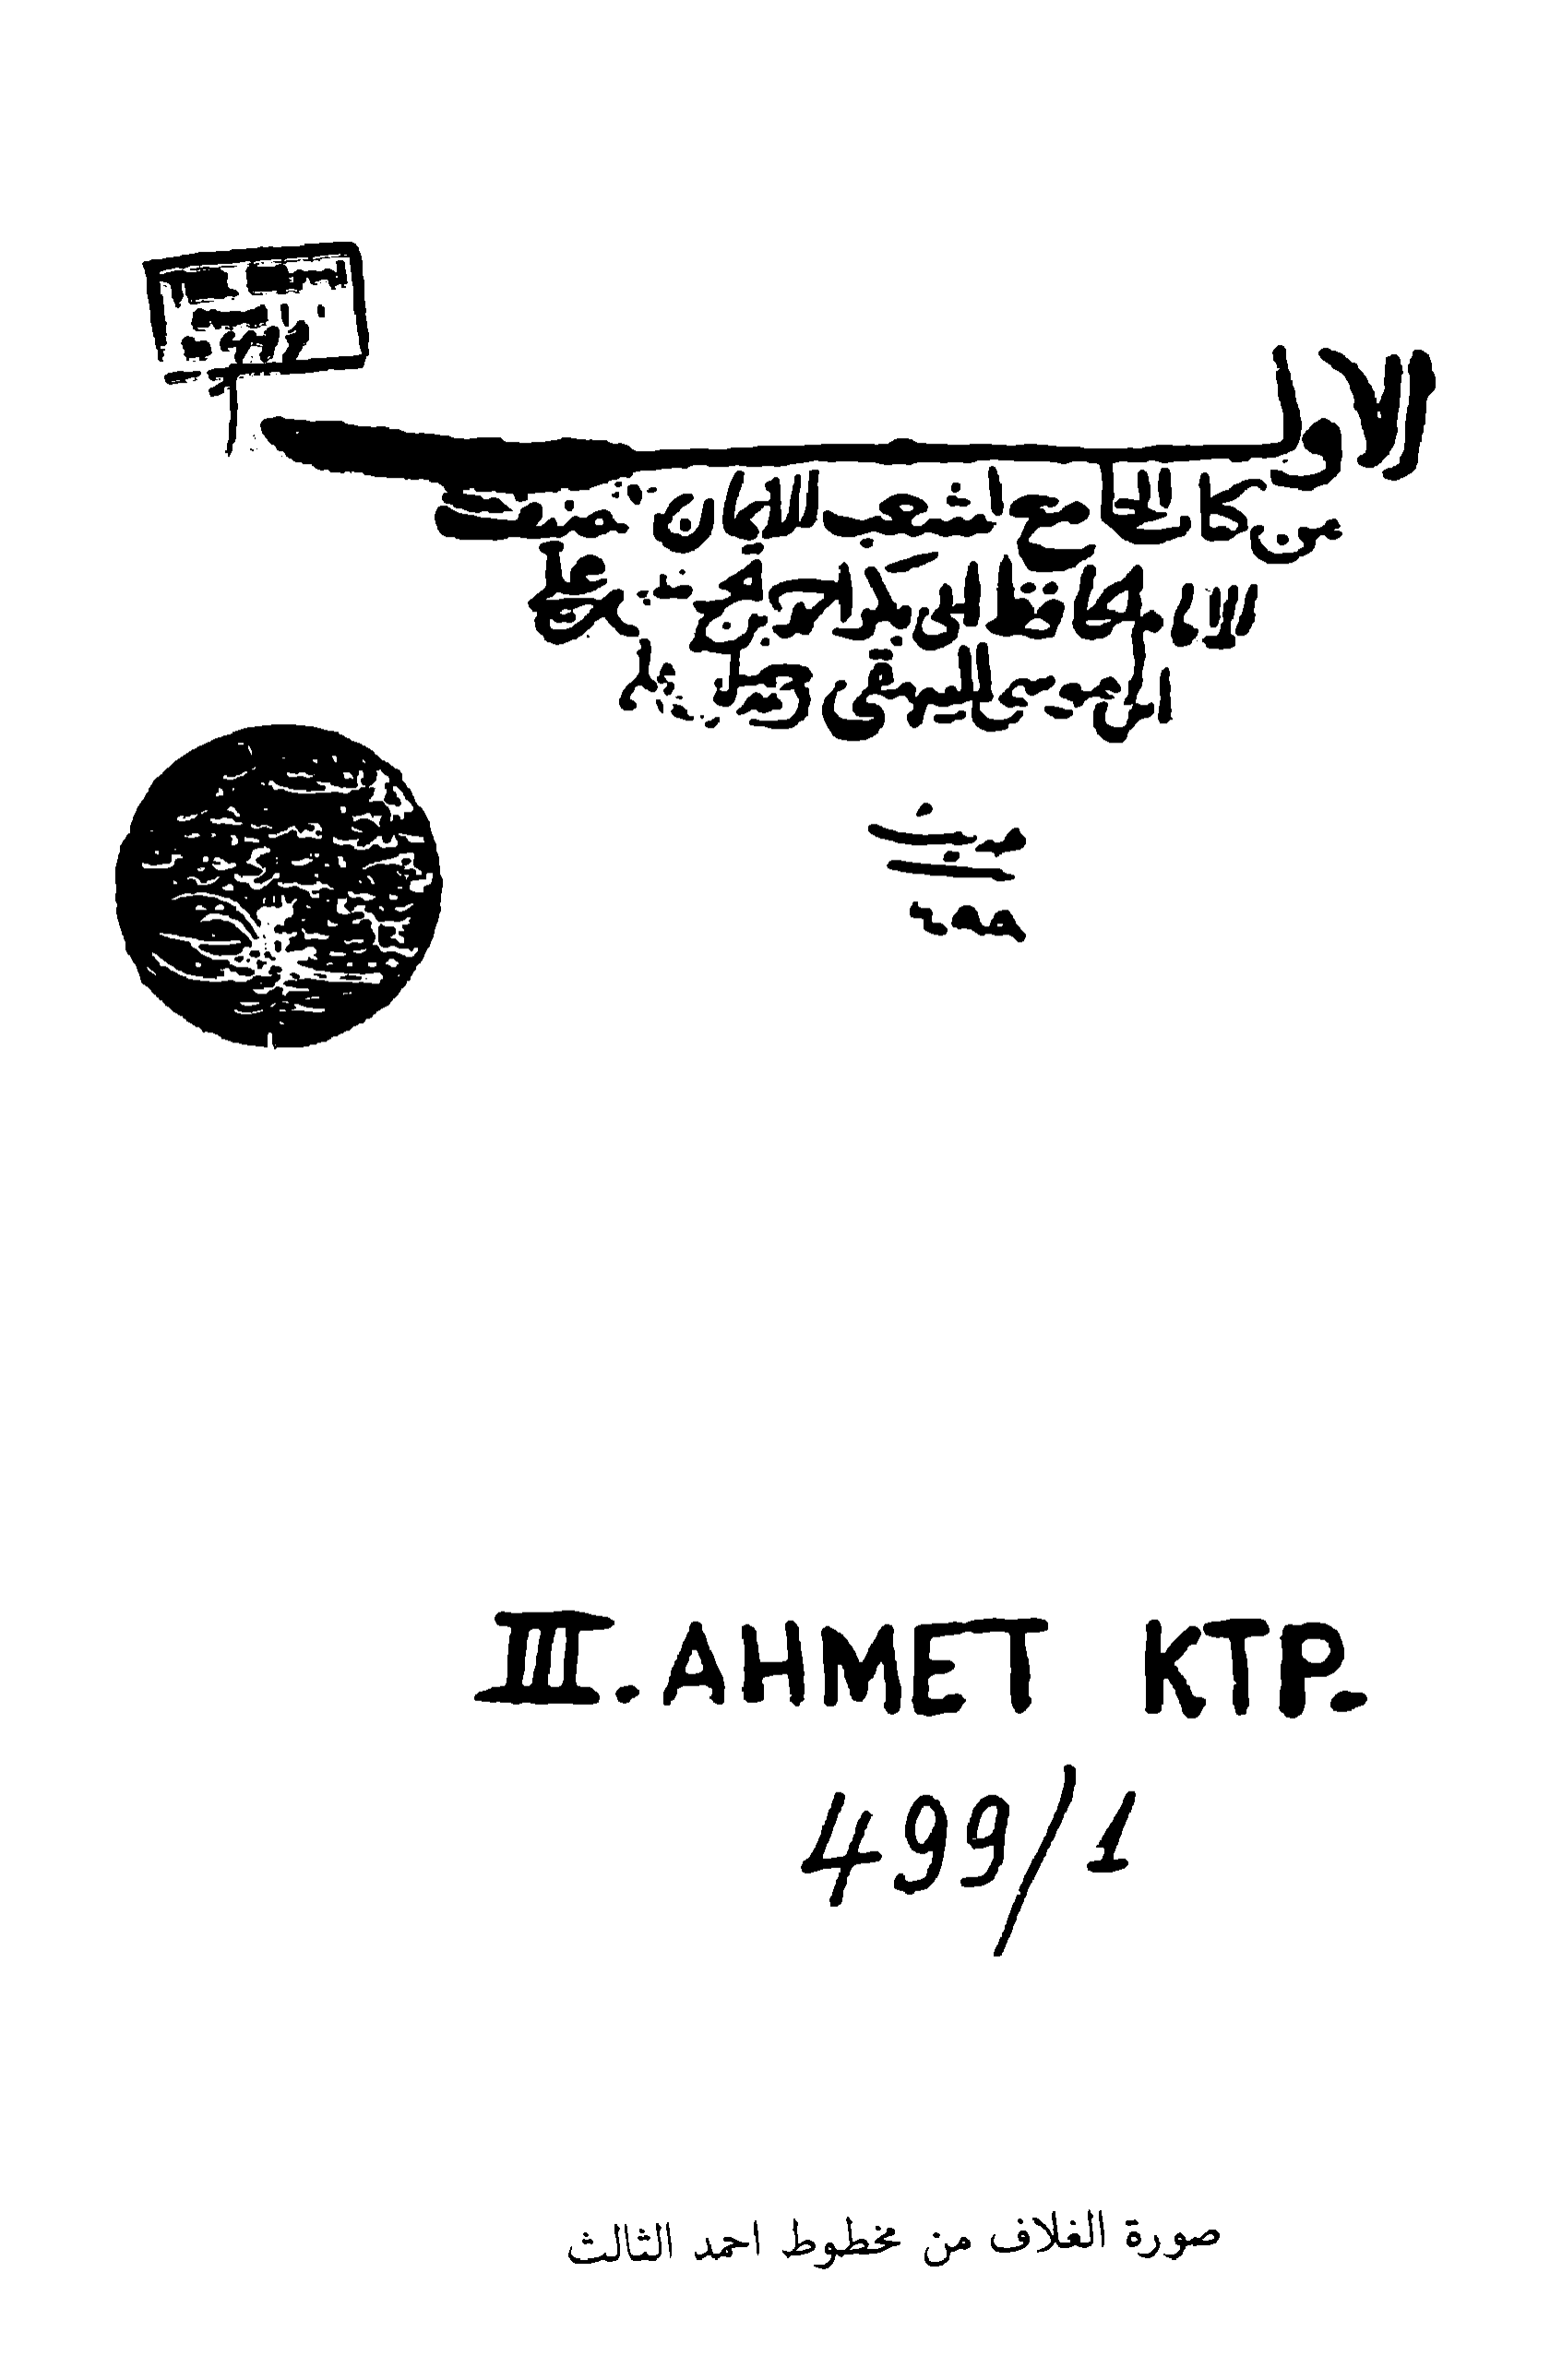 الاول
من كتاب الجامع لشعب الايمان تصنيف
الامام الحافظ ابى بكر احمد بن الحسين بن على
ابن موسى البيهقى
حديث
٤٩٩
III. AHMET KTP.
499/1
صورة الغلاف من مخطوط احمد الثالث